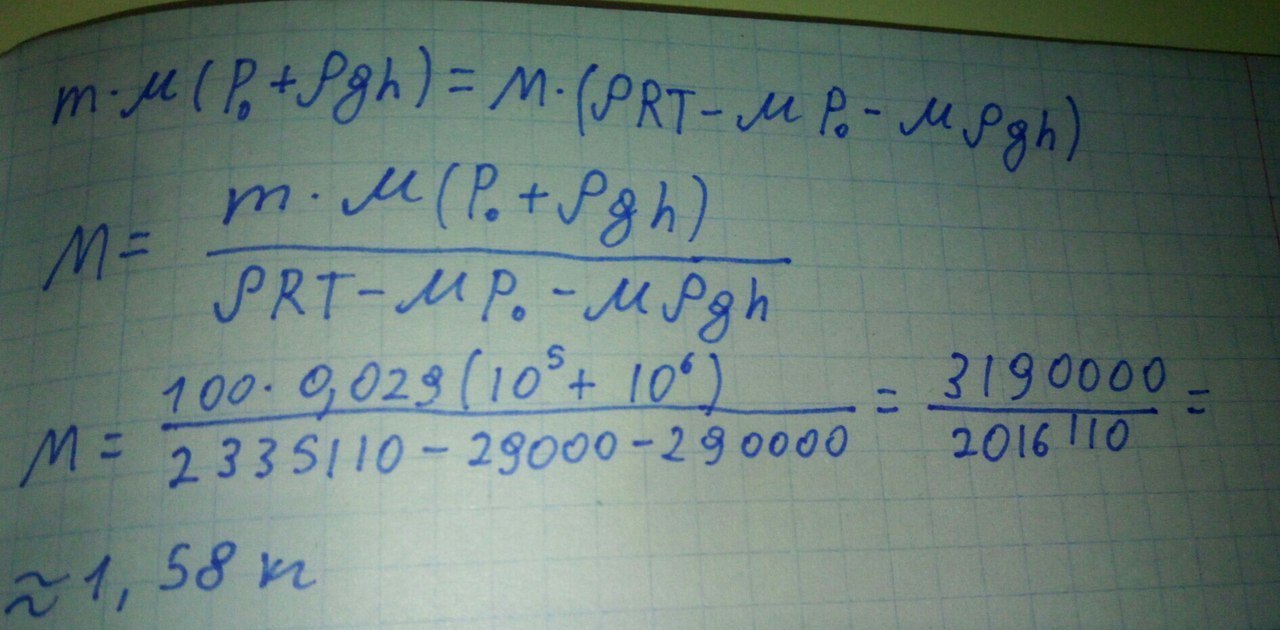 m·μ(P₀+ρgh)=M·(ρRT-μP₀-μρgh)
M= m·μ(P₀+ρgh) / ρRT-μP₀-μρgh
M= 100·0,029(10⁵+10⁶) / 2335110-29000-290000 = 3190000 / 2016110 =
≈1,58 кг